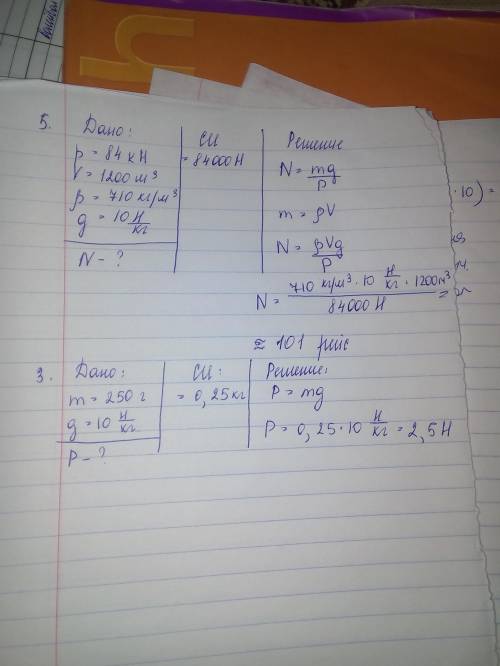 5.
Дано:
P = 84 кН
V = 1200 м³
ρ = 710 кг/м³
g = 10 Н/кг
N - ?
СИ
= 84000 Н
Решение
N = mg/P
m = ρV
N = ρVg/P
N = 710 кг/м³ · 10 Н/кг · 1200м³ / 84000 Н ≈
≈ 101 рейс
· 10) =
3.
Дано:
m = 250 г
g = 10 Н/кг
P - ?
СИ:
= 0,25кг
Решение:
P = mg
P = 0,25 · 10 Н/кг = 2,5 Н